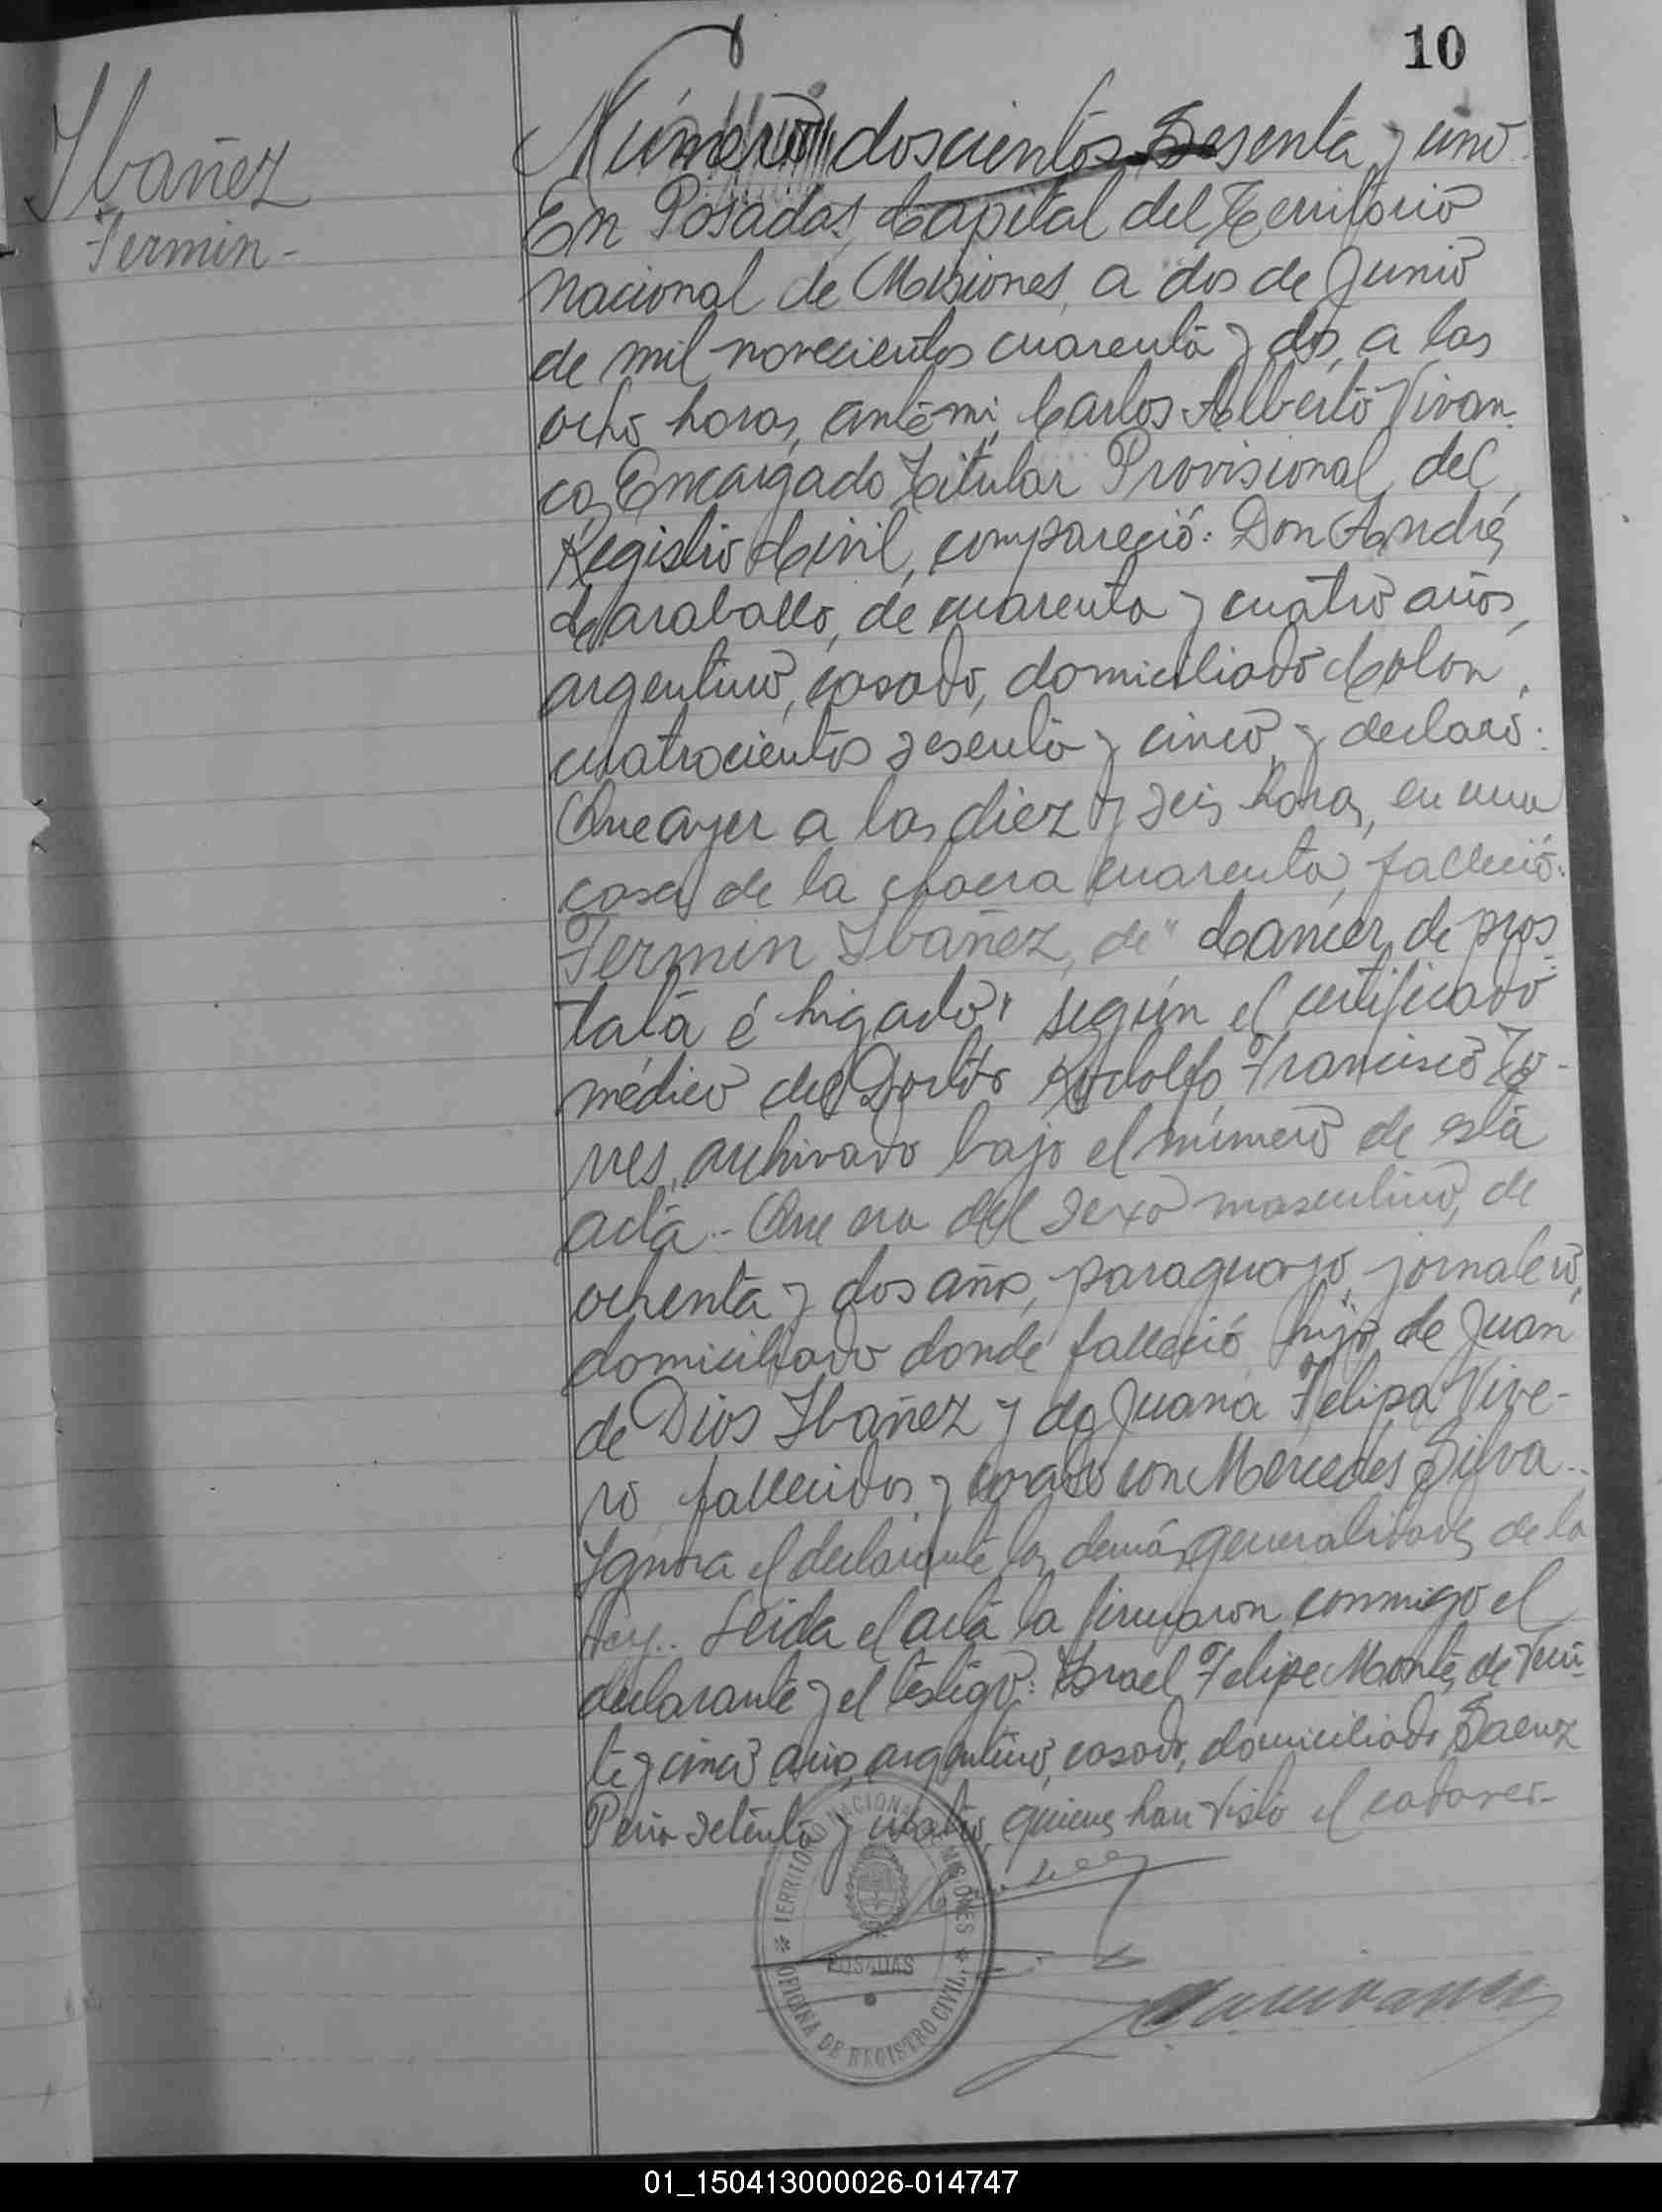 10
Ibañez
Fermin -
Número doscientos sesenta y uno.
En Posadas, Capital del Territorio
Nacional de Misiones, a dos de Junio
de mil novecientos cuarenta y dos, a las
ocho horas, ante mi, Carlos Alberto Vivan-
co, Encargado Titular Provisional del
Registro Civil, compareció: Don Andrés
Caraballo, de cuarenta y cuatro años,
argentino, casado, domiciliado Colon
cuatrocientos sesenta y cinco, y declaró:
Que ayer a las diez y seis horas, en una
casa de la chacra cuarenta, falleció:
Fermin Ibañez, de "Cancer de pros-
tata é higado" según el certificado
médico del Doctor Rodolfo Francisco To-
rres, archivado bajo el número de esta
acta.- Que era del sexo masculino, de
ochenta y dos años, paraguayo, jornalero,
domiciliado donde falleció, hijo de Juan
de Dios Ibañez y de Juana Felipa Vive-
ro, fallecidos y casado con Mercedes Silva.-
Ignora el declarante las demás generalidades de la
ley.- Leida el acta la firmaron conmigo el
declarante y el testigo: Israel Felipe Monte, de vein-
te y cinco años, argentino, casado, domiciliado Saenz
Peña setenta y cuatro, quienes han visto el cadaver.-
TERRITORIO NACIONAL DE MISIONES
POSADAS
OFICINA DE REGISTRO CIVIL
01_150413000026-014747